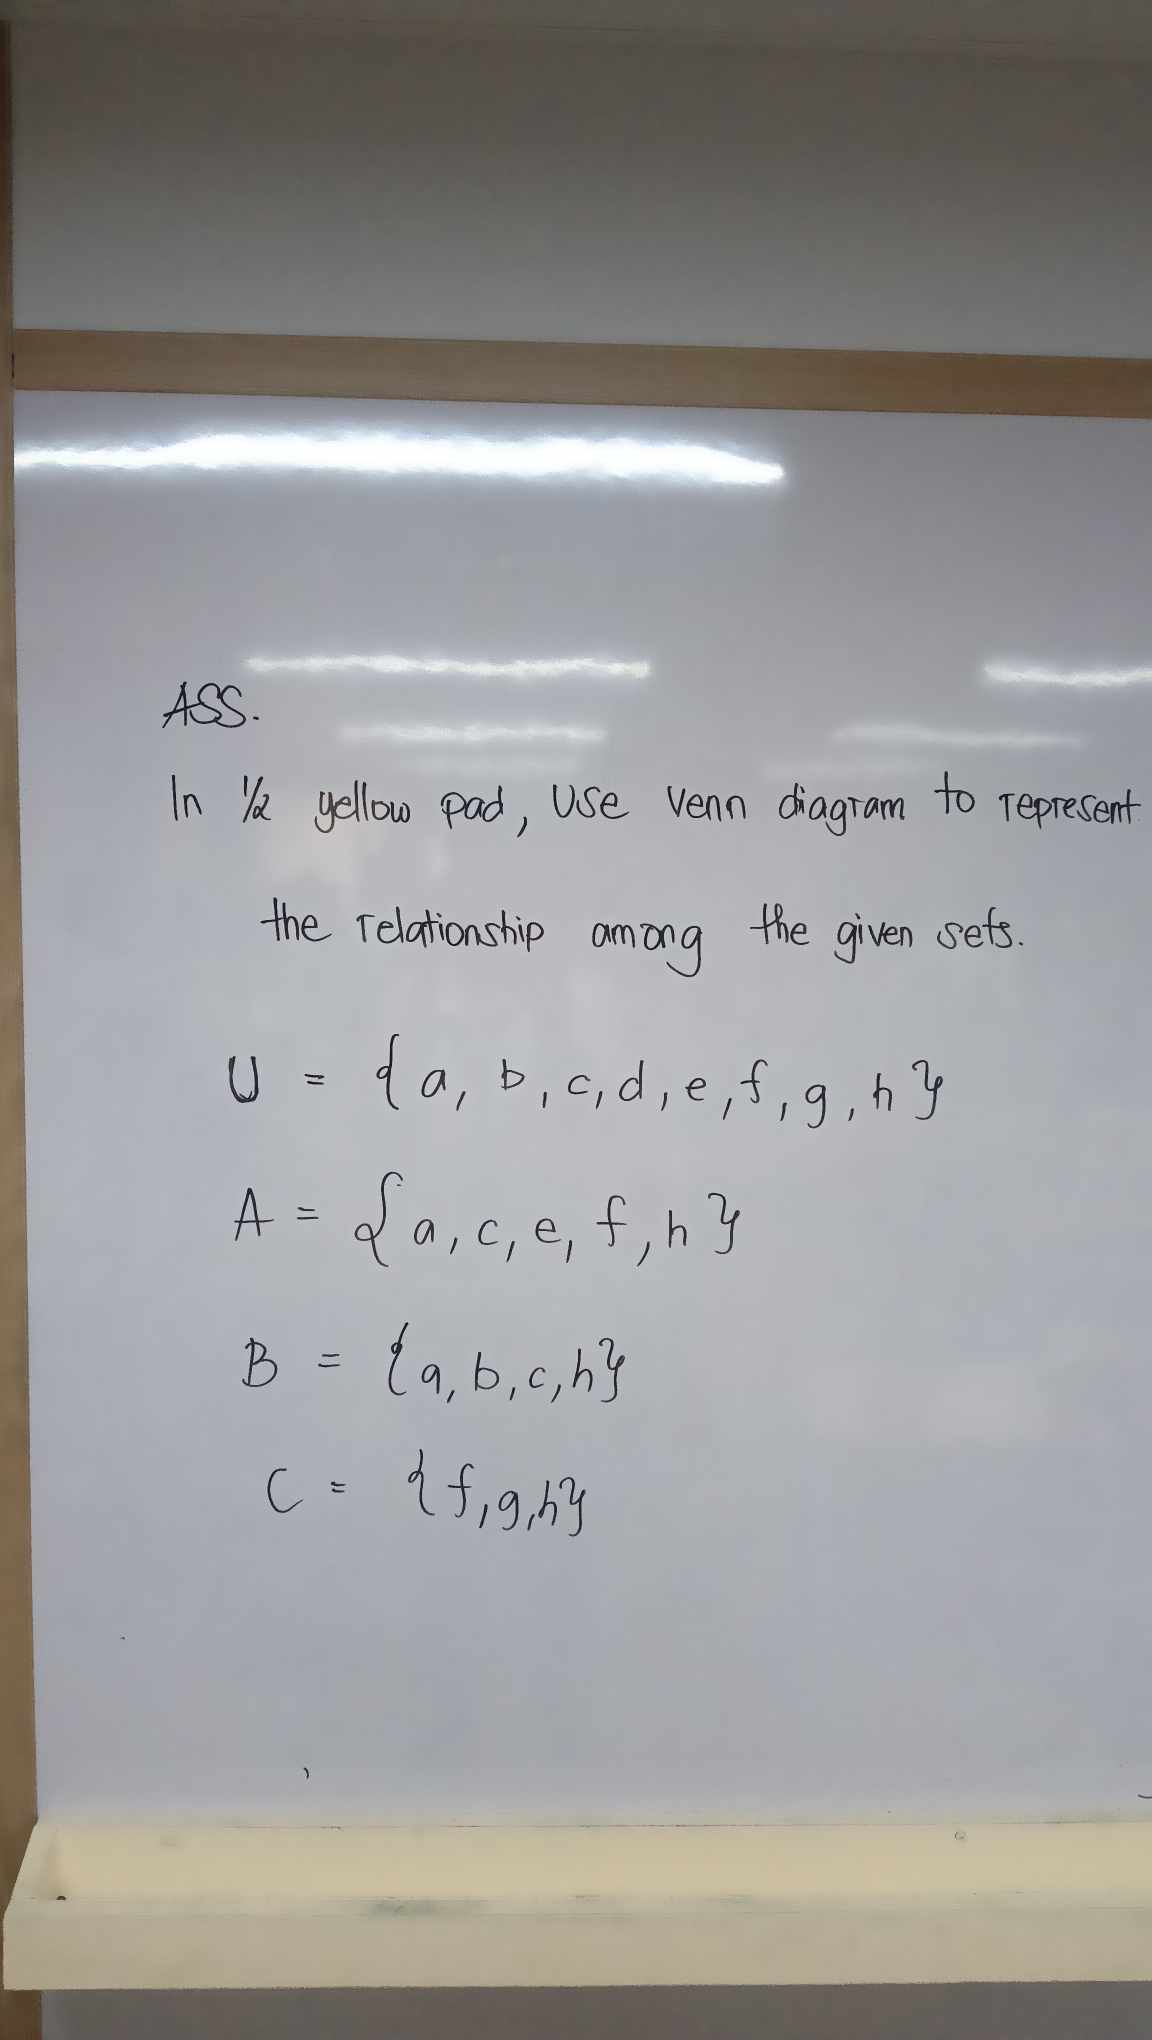 ASS.
In 1/2 yellow pad, Use Venn diagram to represent
the relationship among the given sets.
U = {a, b, c, d, e, f, g, h}
A = {a, c, e, f, h}
B = {a, b, c, h}
C = {f, g, h}